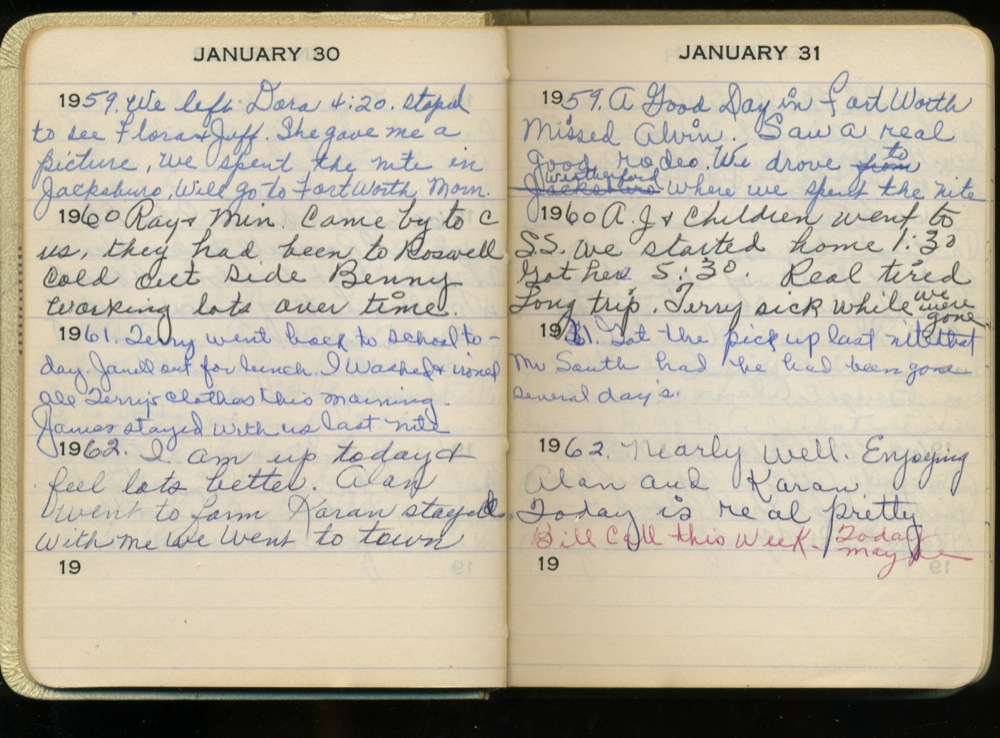 JANUARY 30
1959. We left Dora 4:20. stoped
to see Flora & Jeff. She gave me a
picture, we spent the nite in
Jacksburo, Will go to Fort Worth Morn.
1960 Ray & Min. Came by to C
us, they had been to Roswell
Cold out side Benny
working lots over time.
1961. Terry went back to school to-
day. Janell out for lunch. I Washed & ironed
all Terry's clothes this morning.
James stayed with us last nite
1962. I am up today &
feel lots better. Alan
went to farm Karan stayed
with me we went to town
19
JANUARY 31
1959. A Good Day in Fort Worth
Missed Alvin. Saw a real
good rodeo. We drove from to
Jacksburo Weatherford where we spent the nite
1960 A.J & children went to
S.S. we started home 1:30
Got here 5:30. Real tired
Long trip. Terry sick while we were
gone
1961. Got the pick up last nite that
Mr South had he had been gone
several day's.
1962. Nearly well. Enjoying
Alan and Karan.
Today is real pretty
Bill Call this Week - Today
may be
19